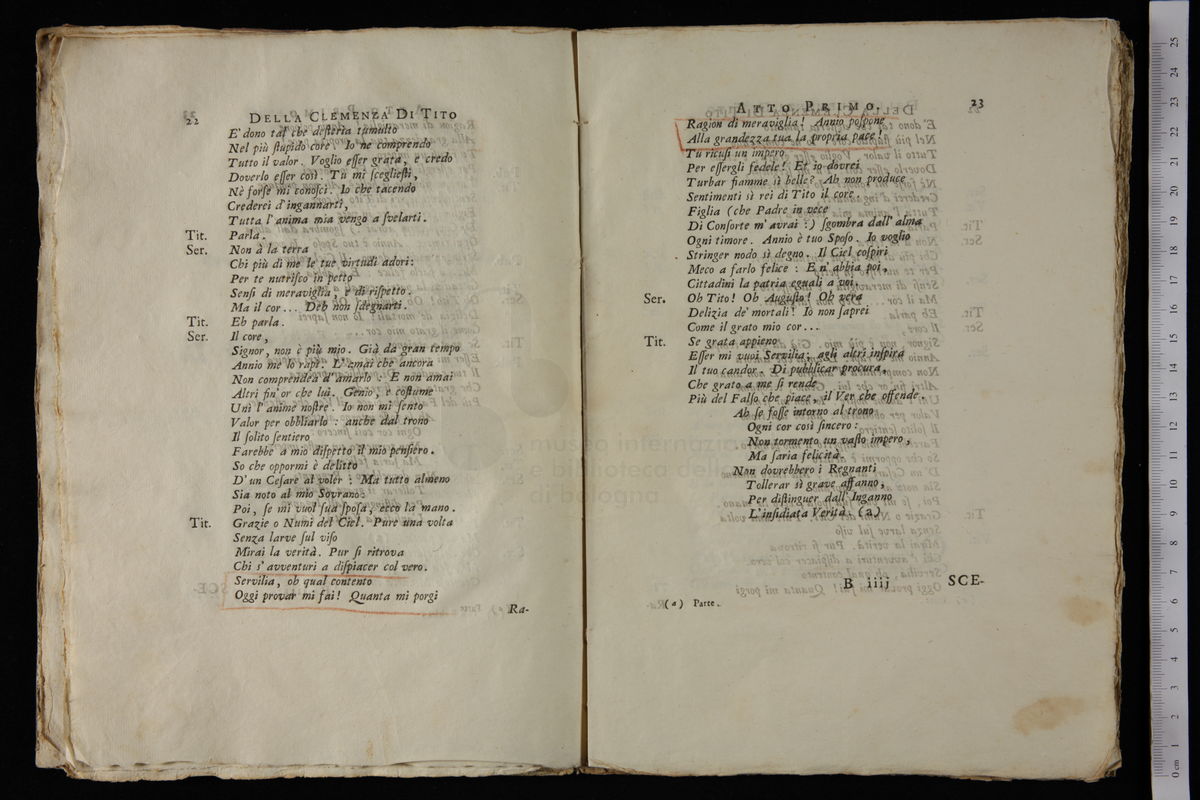 22 DELLA CLEMENZA DI TITO
E' dono tal che desteria tumulto
Nel più ſtupido core. Io ne comprendo
Tutto il valor. Voglio eſſer grata, e credo
Doverlo eſſer così. Tu mi ſceglieſti,
Nè forſe mi conoſci. Io che tacendo
Crederei d'ingannarti,
Tutta l'anima mia vengo a ſvelarti.
Tit. Parla.
Ser. Non à la terra
Chi più di me le tue virtudi adori:
Per te nutriſco in petto
Senſi di meraviglia, e di riſpetto.
Ma il cor... Deh non ſdegnarti.
Tit. Eh parla.
Ser. Il core,
Signor, non è più mio. Già da gran tempo
Annio me lo rapì. L'amai che ancora
Non comprendea d'amarlo: E non amai
Altri fin'or che lui. Genio, e coſtume
Unì l'anime noſtre. Io non mi ſento
Valor per obbliarlo: anche dal trono
Il ſolito ſentiero
Farebbe a mio diſpetto il mio penſiero.
So che oppormi è delitto
D'un Ceſare al voler: Ma tutto almeno
Sia noto al mio Sovrano:
Poi, ſe mi vuol ſua ſpoſa, ecco la mano.
Tit. Grazie o Numi del Ciel. Pure una volta
Senza larve ſul viſo
Mirai la verità. Pur ſi ritrova
Chi s'avventuri a diſpiacer col vero.
Servilia, oh qual contento
Oggi provar mi fai! Quanta mi porgi
Ra-
ATTO PRIMO. 23
Ragion di meraviglia! Annio poſpone
Alla grandezza tua la propria pace!
Tu ricuſi un impero
Per eſſergli fedele! Et io dovrei
Turbar fiamme sì belle? Ah non produce
Sentimenti sì rei di Tito il core.
Figlia (che Padre in vece
Di Conſorte m'avrai:) ſgombra dall'alma
Ogni timore. Annio è tuo Spoſo. Io voglio
Stringer nodo sì degno. Il Ciel coſpiri
Meco a farlo felice: E n'abbia poi,
Cittadini la patria eguali a voi.
Ser. Oh Tito! Oh Auguſto! Oh vera
Delizia de' mortali! Io non ſaprei
Come il grato mio cor...
Tit. Se grata appieno
Eſſer mi vuoi Servilia; agli altri inſpira
Il tuo candor. Di pubblicar procura,
Che grato a me ſi rende
Più del Falſo che piace, il Ver che offende.
Ah ſe foſſe intorno al trono
Ogni cor così ſincero:
Non tormento un vaſto impero,
Ma ſaria felicità.
Non dovrebbero i Regnanti
Tollerar sì grave affanno,
Per diſtinguer dall'Inganno
L'inſidiata Verità. (a)
B iiij SCE-
(a) Parte.
museo internaz
e biblioteca della
di bologna